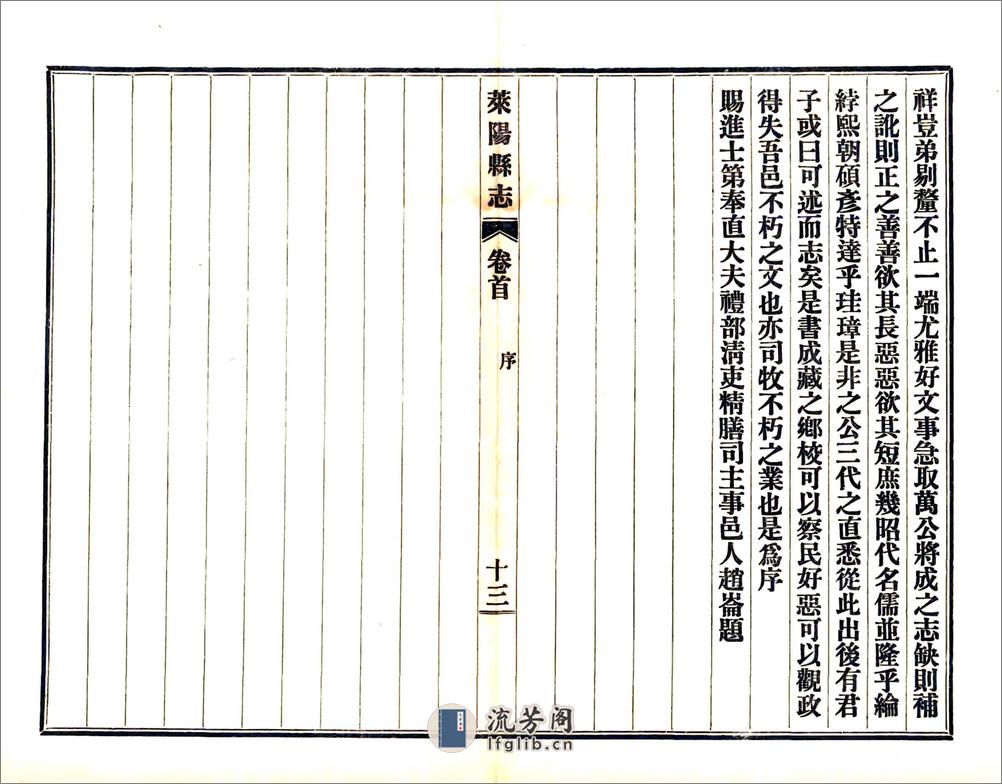 祥豈弟剔釐不止一端尤雅好文事急取萬公將成之志缺則補
之訛則正之善善欲其長惡惡欲其短庶幾昭代名儒並隆乎綸
綍熙朝碩彥特達乎珪璋是非之公三代之直悉從此出後有君
子或曰可述而志矣是書成藏之鄕校可以察民好惡可以觀政
得失吾邑不朽之文也亦司牧不朽之業也是爲序
賜進士第奉直大夫禮部淸吏精膳司主事邑人趙崙題
萊陽縣志 卷首 序 十三
流芳阁
lfglib.cn